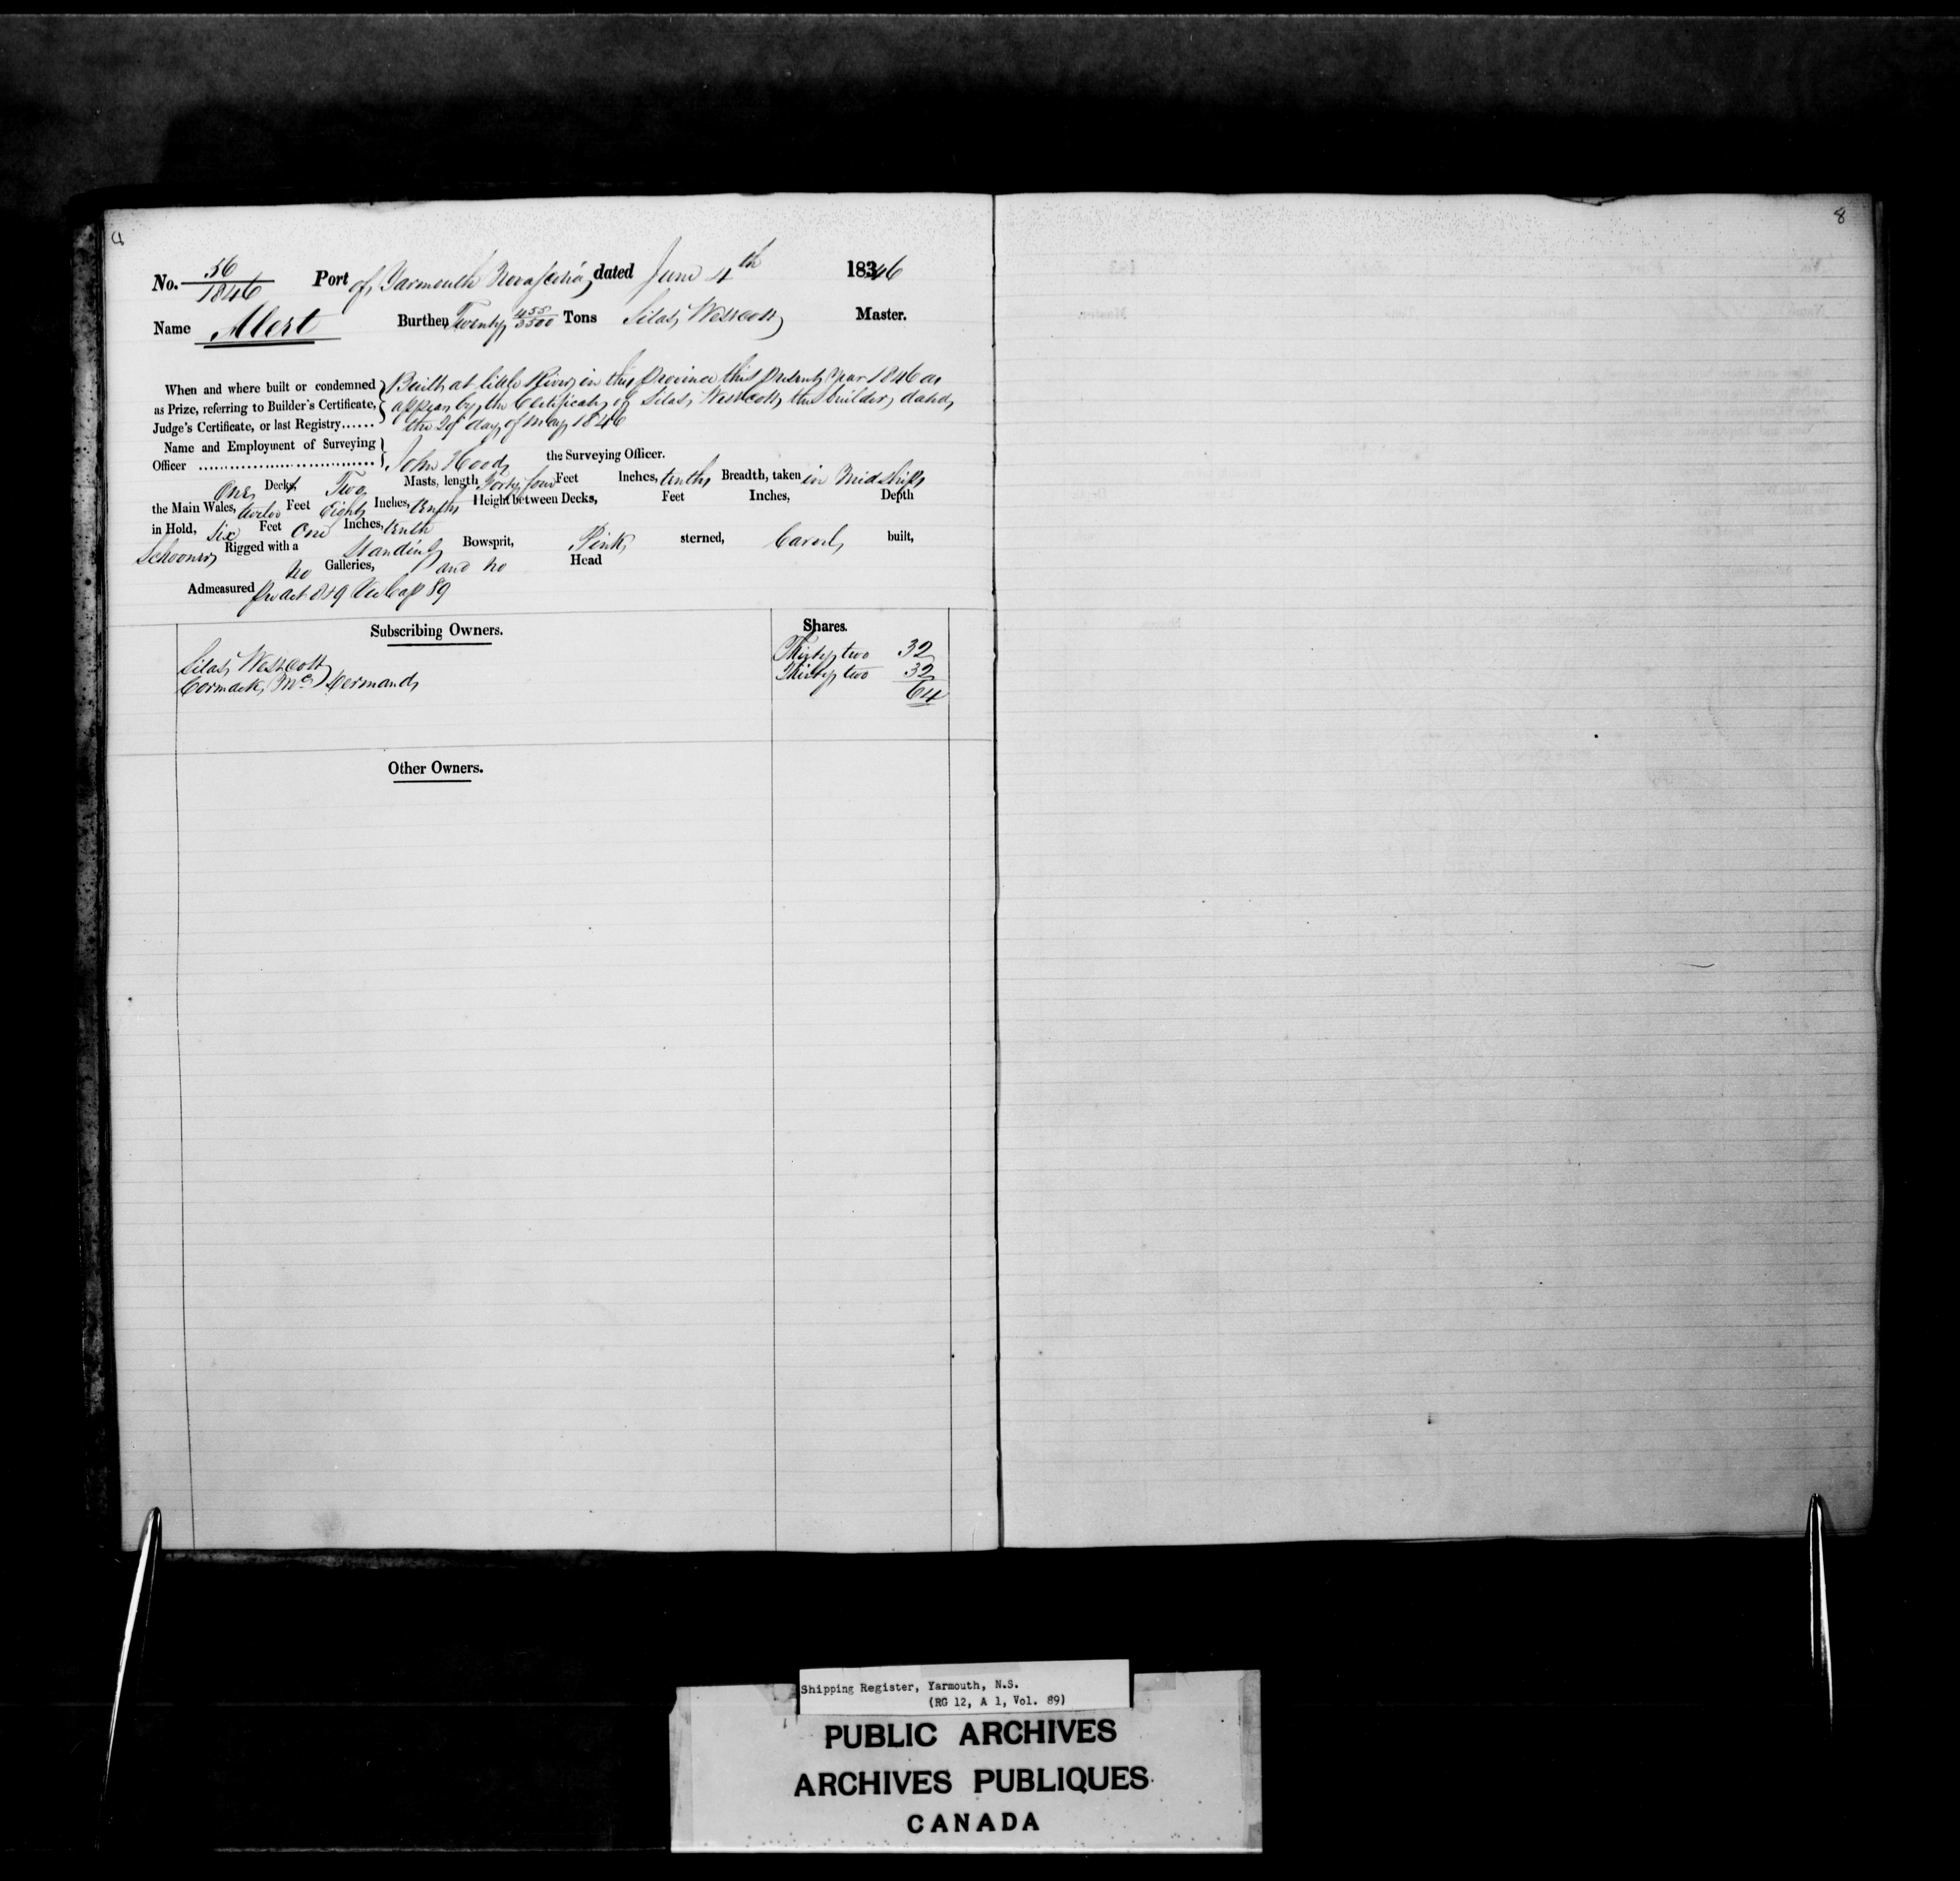 4
8
No. 56/1846 Port of Yarmouth Nova Scotia, dated June 4th 18346
Name Alert Burthen Twenty 455/3500 Tons Silas Westcott Master.
When and where built or condemned as Prize, referring to Builder's Certificate, Judge's Certificate, or last Registry......
Built at little River in this Province this present year 1846 as
appears by the Certificate of Silas Westcott the builder dated
the day of May 1846
Name and Employment of Surveying Officer
John Hood the Surveying Officer.
One Deck Two Masts, length Forty four Feet Inches, tenths Breadth, taken in Midships
the Main Wales, twelve Feet Eight Inches, tenths Height between Decks, Feet Inches, Depth
in Hold, Six Feet One Inches, tenth
Schooner Rigged with a Standing Bowsprit, Pink sterned, Carvel built,
no Galleries, and no Head
Admeasured per act 8 & 9 Vic Cap 89
Subscribing Owners. Shares.
Silas Westcott Thirty two 32
Cormack Mc Thirty two 32
64
Other Owners.
Shipping Register, Yarmouth, N.S.
(RG 12, A 1, Vol. 89)
PUBLIC ARCHIVES
ARCHIVES PUBLIQUES
CANADA